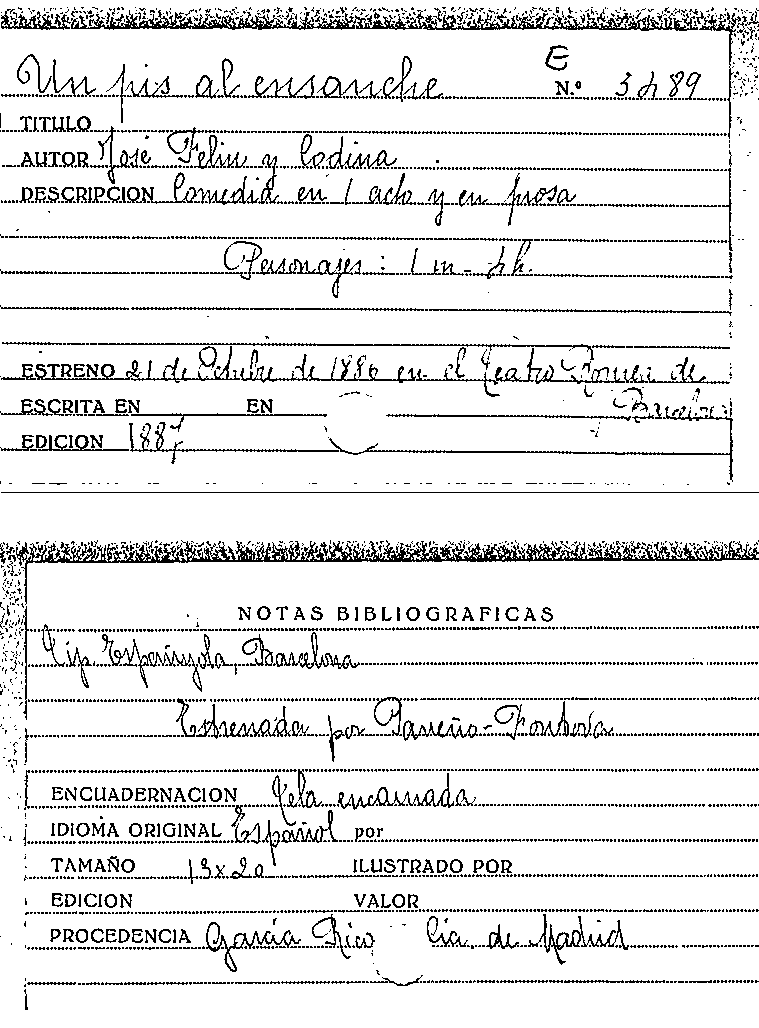 E
Un pis al ensanche N.º 3489
TITULO
AUTOR José Feliu y Codina
DESCRIPCION Comedia en 1 acto y en prosa
Personajes: 1 m - 4 h.
ESTRENO 21 de Octubre de 1886 en el Teatro Romea de
ESCRITA EN EN Barcelona
EDICION 1887
NOTAS BIBLIOGRAFICAS
Tip. Española, Barcelona
Estrenada por Parreño-Fontova
ENCUADERNACION Tela encarnada
IDIOMA ORIGINAL Español por
TAMAÑO 13x20 ILUSTRADO POR
EDICION VALOR
PROCEDENCIA García Rico Cia. de Madrid